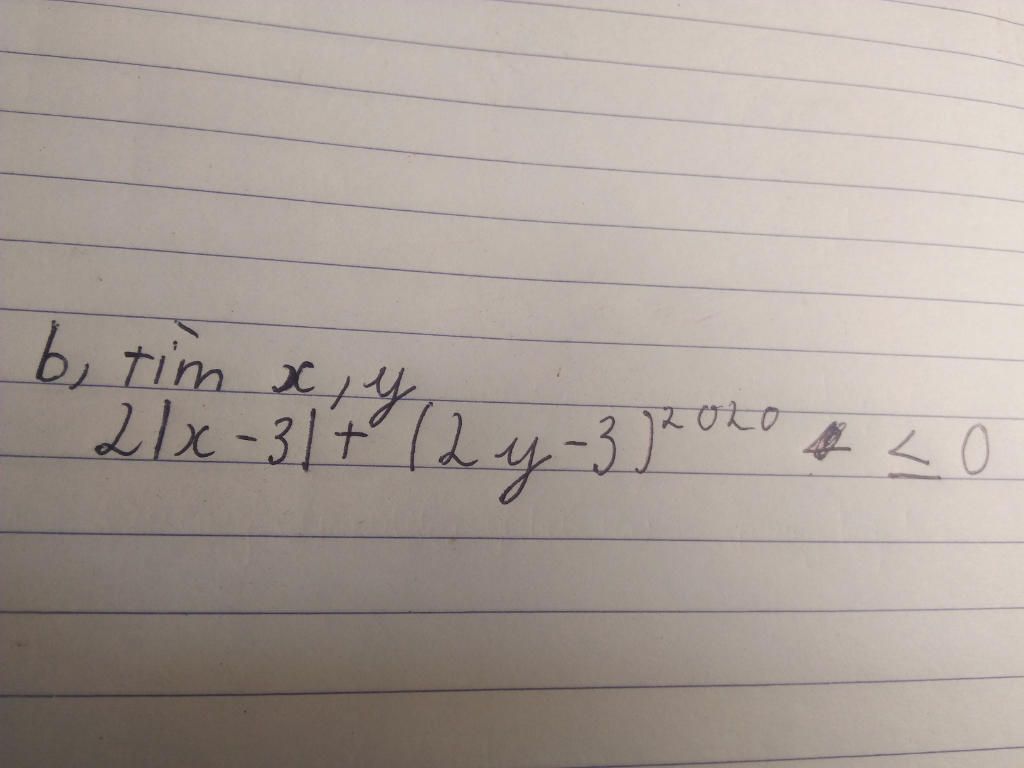 b, tìm x, y
2|x-3|+(2y-3)^2020 ≤ 0